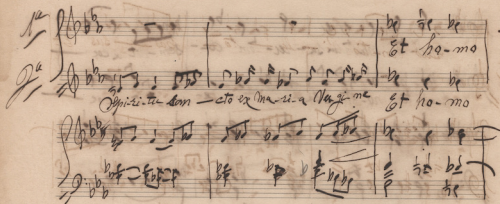 1ª
Et ho-mo
2ª
Spi-ri-tu San-cto ex Ma-ri-a Vir-gi-ne Et ho-mo